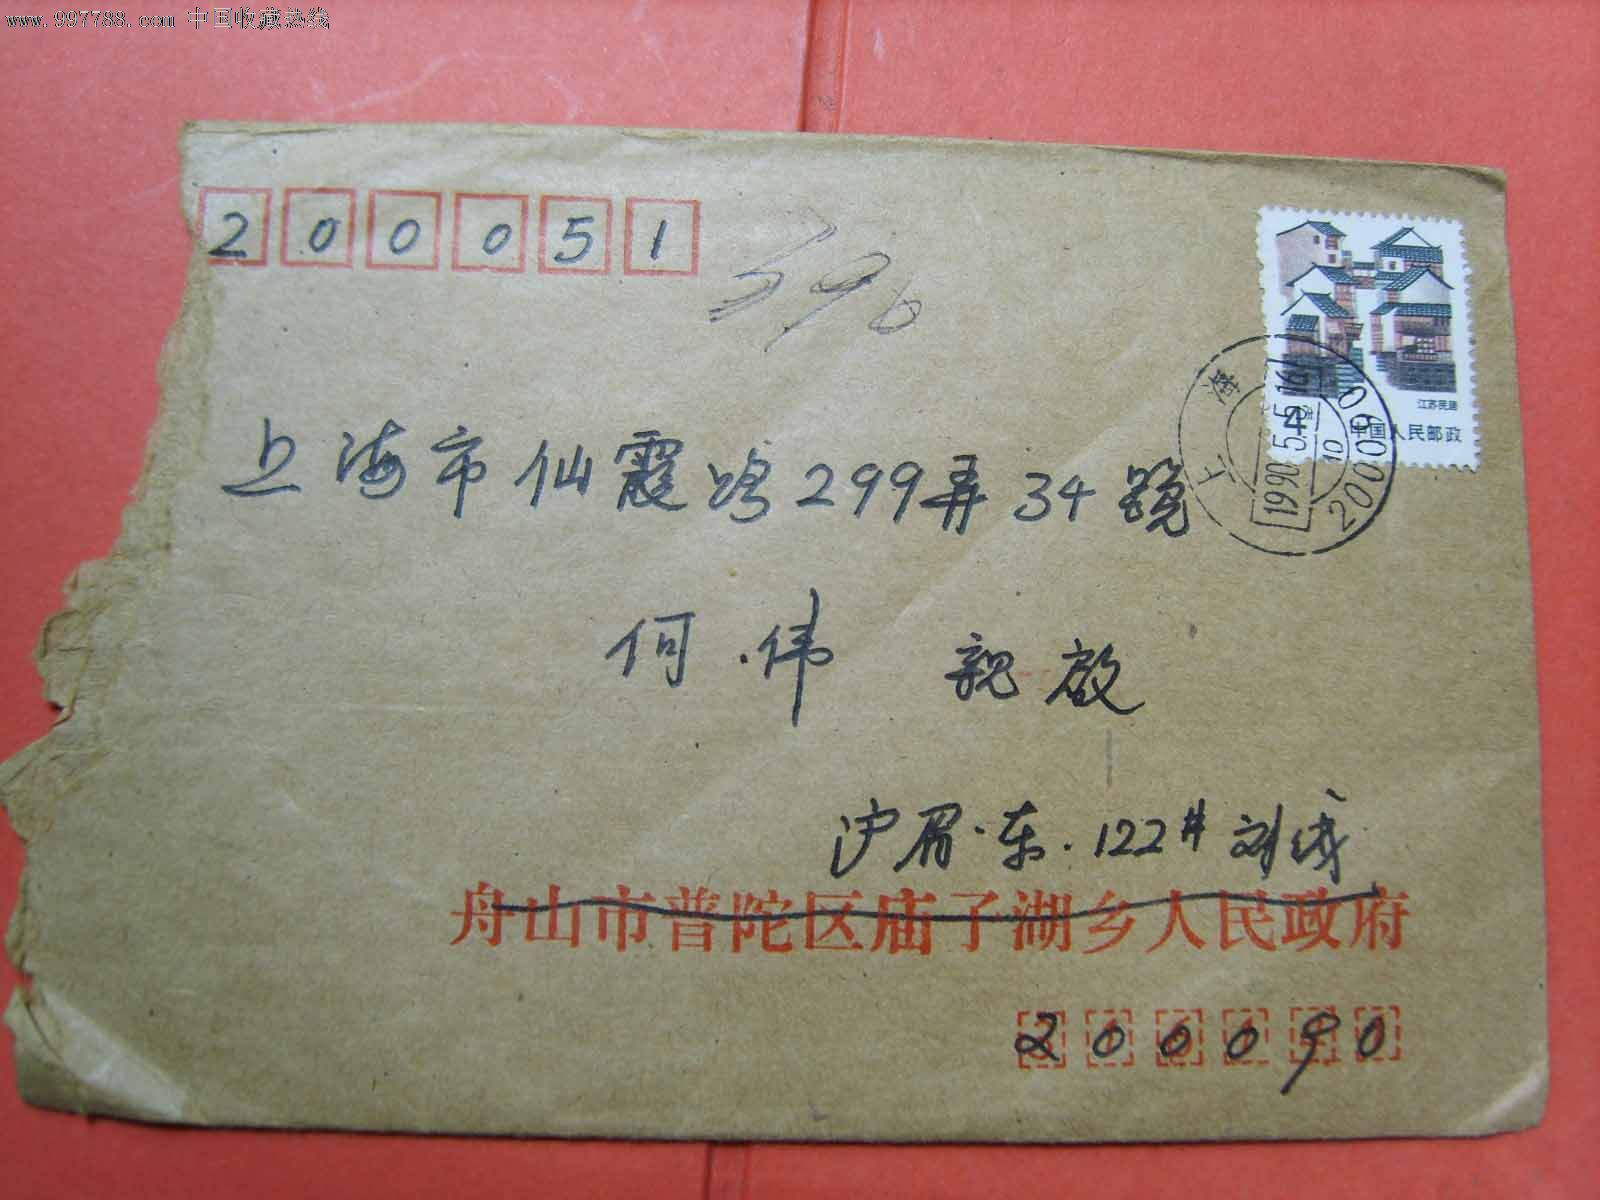 www.997788.com 中国收藏热线
200051
396
江苏民居
中国人民邮政
上海 200090
1990.5.5.16
10
上海市仙霞路299弄34号
何伟 親啟
沪眉·东.122#刘成
舟山市普陀区庙子湖乡人民政府
200090